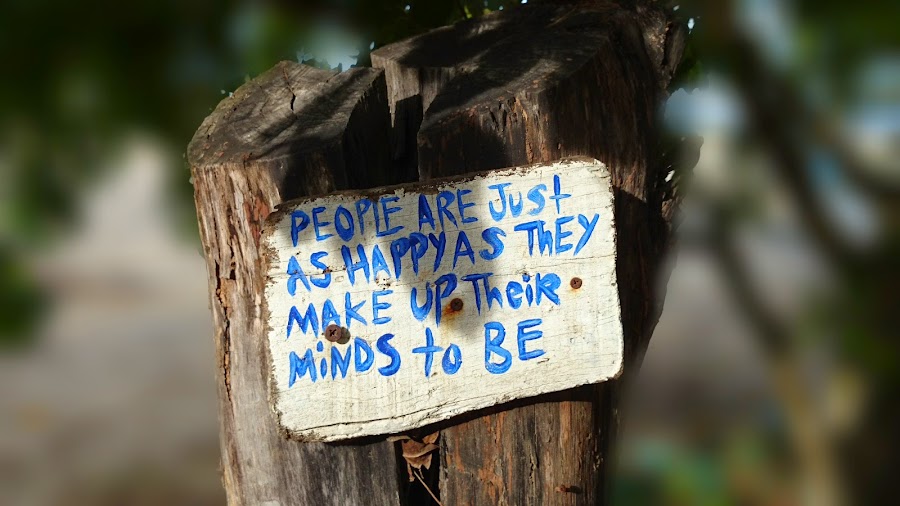 PEOPLE ARE JUST
AS HAPPY AS THEY
MAKE UP THEiR
MiNDS to BE